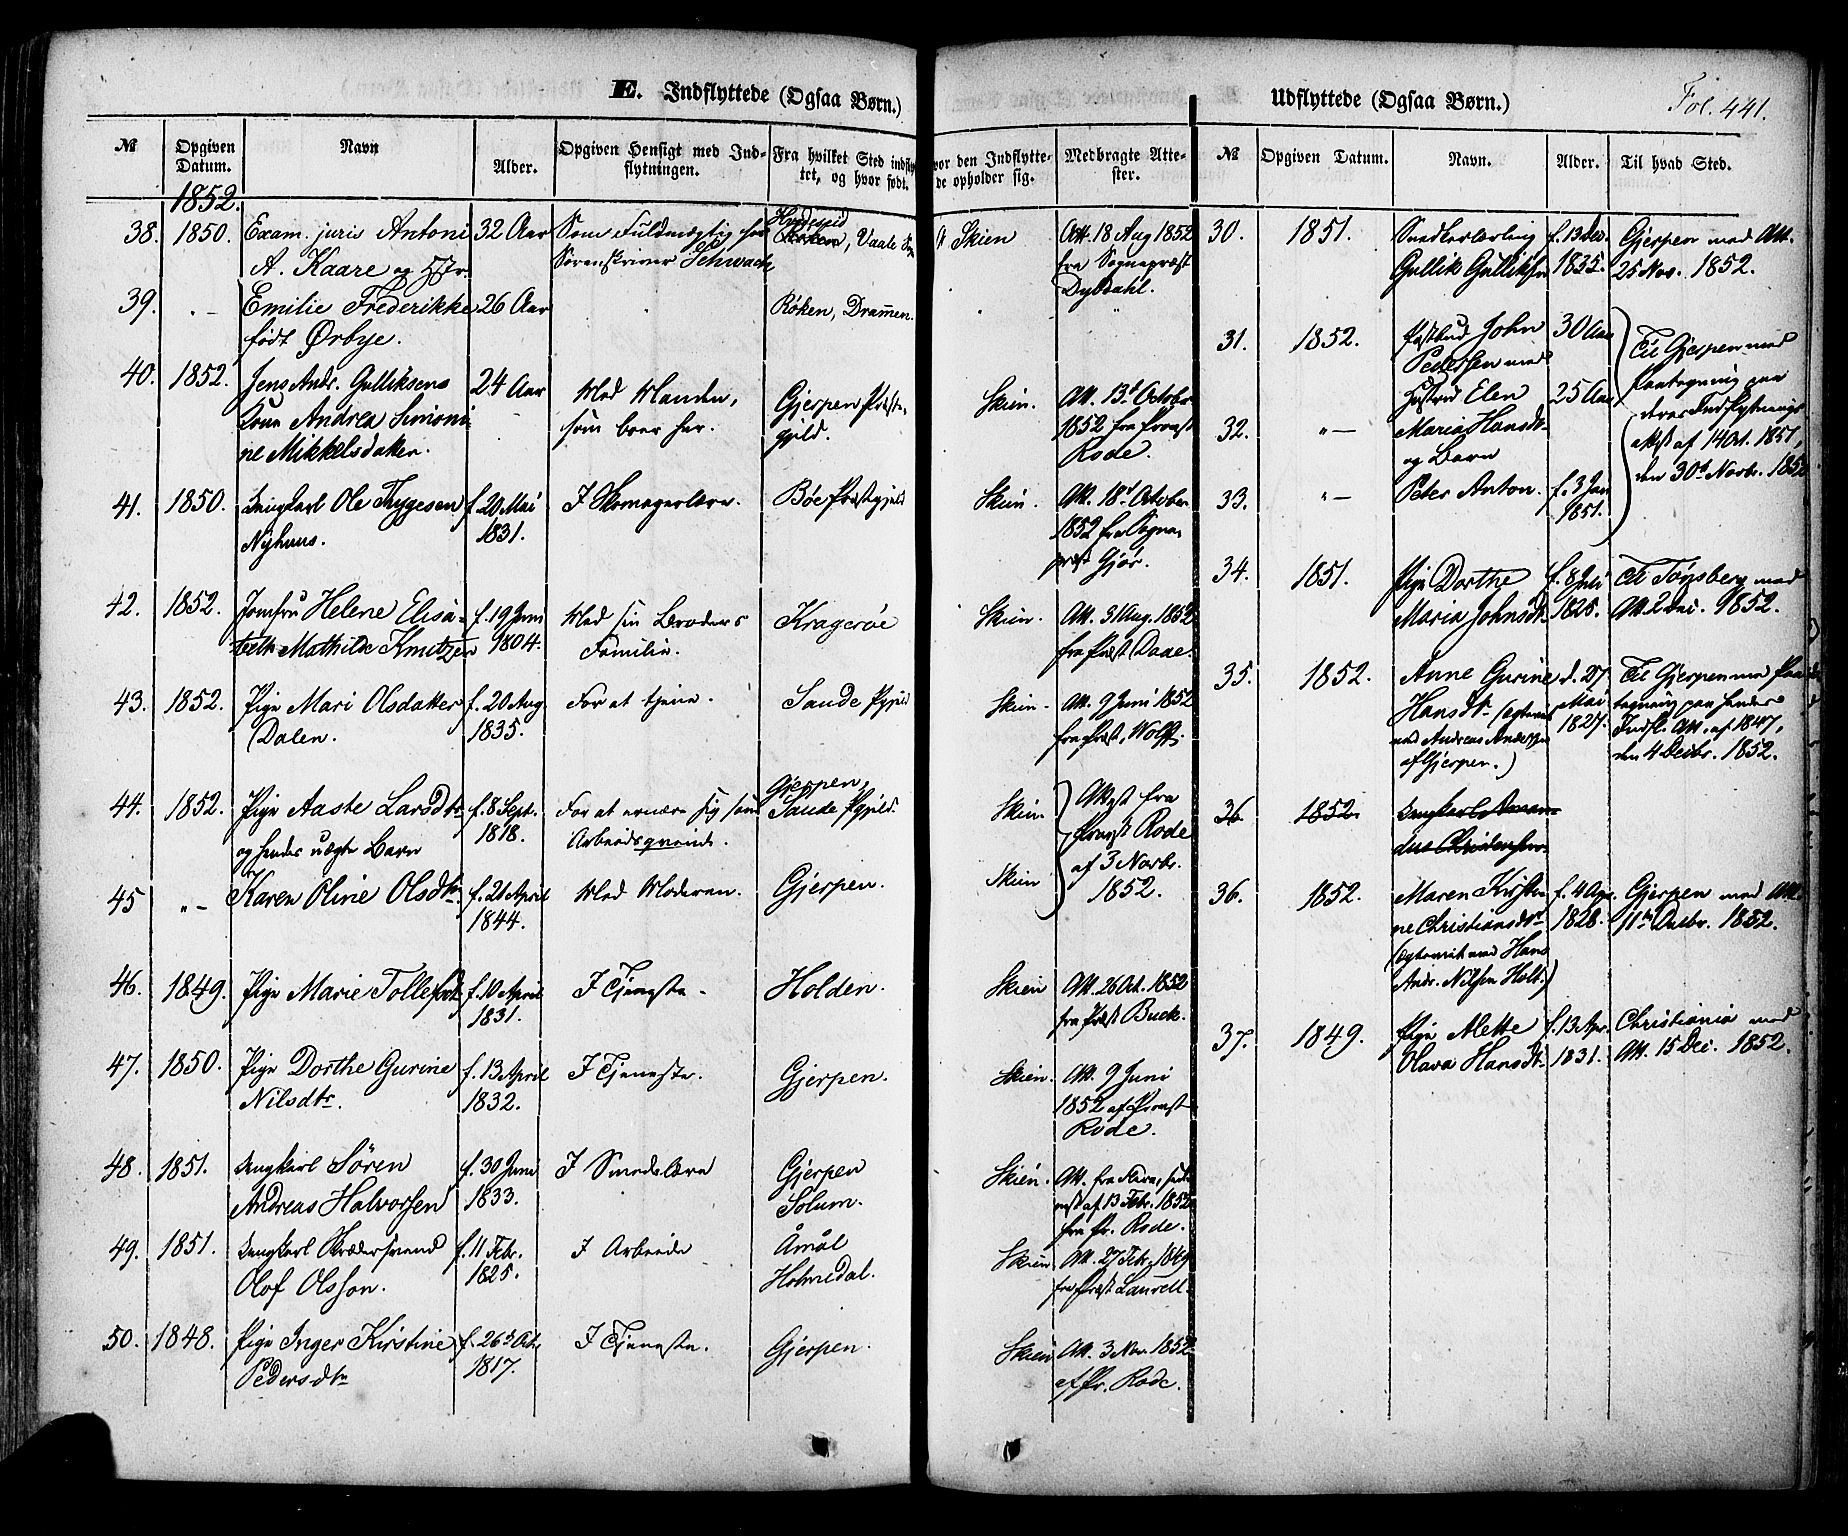 E. Indflyttede (Ogsaa Børn.)
Udflyttede (Ogsaa Børn.)
Fol. 441.
№ Opgiven Datum. Navn Alder. Opgiven Hensigt med Ind-
flytningen. Fra hvilket Sted indfly
tet, og hvor født. vor den Indflytte-
de opholder sig. Medbragte Atte-
ster.
1852.
38. 1850. Exam. juris Antoni 32 Aar Som Fuldmægtig hos Røken, Skien Att. 18 Aug 1852
A. Kaare og Sørenskriver Schwach fra Sognepræst
Dybdahl.
39. " — Emilie Frederikke 26 Aar " Røken, Drammen.
født Ørbye.
40. 1852. Jens Andr. Gulliksens 24 Aar Med Manden, Gjerpen Præste- Skien. Att. 13de Octobr
Kone Andrea Simoni- som boer her. gjeld. 1852 fra Provst
ne Mikkelsdatter. Rode.
41. 1850. Ungkarl Ole Thygesen f. 20 Mai I Skomagerlære. Bøe Præstegjeld Skien. Att. 18d October
Nyhuus. 1831. 1852 fra Sogne-
præst Gjør.
42. 1852. Jomfru Helene Elisa- f. 19 Juni Med sin Broders Kragerøe Skien. Att. 31 Aug. 1852
beth Mathilde Knutzen 1804. Familie. fra Præst Daae.
43. 1852. Pige Mari Olsdatter f. 20 Aug. For at tjene. Saude Pgjeld Skien. Att. 9 Juni 1852
Dalen. 1835. fra Præst, Wolff.
44. 1852. Pige Aaste Larsdtr f. 8 Sept. For at ernære sig som Gjerpen, Saude Pgjeld. Skien. Attest fra
og hendes uægte Barn 1818. Arbeidsqvinde. Provst Rode
45 " — Karen Oline Olsdtr f. 21 April Med Moderen. Gjerpen. Skien af 3 Novbr.
1844. 1852.
46. 1849. Pige Marie Tollefsdt f. 10 April I Tjeneste. Holden. Skien Att. 26 Oct. 1852
1831. fra Præst Buck.
47. 1850. Pige Dorthe Gurine f. 13 April I Tjeneste. Gjerpen. Skien. Att. 9 Juni
Nilsdtr. 1832. 1852 af Provst
Rode.
48. 1851. Ungkarl Søren f. 30 Juni I Smedelære Gjerpen Skien. Att. fra
Andreas Halvorsen 1833. Solum. af 13 Febr. 1852
fra Pr. Rode.
49. 1851. Ungkarl Skrædersvend f. 11 Febr. I Arbeide Åmål Skien Att. 27 Febr. 1849
Olof Olsson. 1825. Holmedal. fra Præst Laurell.
50. 1848. Pige Inger Kirstine f. 26d Oct. I Tjeneste. Gjerpen. Skien Att. 3 Nov. 1852
Pedersdtr 1817. af Pr. Rode.
№ Opgiven Datum. Navn. Alder. Til hvad Sted.
30. 1851. Snedkerlærling f. 13 Dec. Gjerpen med Att.
Gullik Gulliksen 1835. 25 Nov. 1852.
31. 1852. Postbud John 30 Aar Til Gjerpen med
Petersen med Paategning paa
Hustru Elen 25 Aar deres Indflytnings-
32. " — Maria Hansdtr attest af 14 Oct. 1851,
og Barn den 30d Novbr. 1852
33. " — Peter Anton. f. 3 Jan
1851.
34. 1851. Pige Dorthe f. 8 Juli Til Tønsberg med
Maria Johnsdt. 1825. Att. 2 Dec. 1852.
35. 1852. Anne Gurine d. 27 Til Gjerpen med Paa
Hansdtr (egteviet Mai tegning paa hendes
med Andreas Andersen 1827. Indfl. Att. af 1847,
af Gjerpen.) den 4 Decbr. 1852.
36 1852. Ungkarl Aman-
dus Christensen
36. 1852. Maren Kirsti- f. 4 Aug. Gjerpen med Att.
ne Christiansdtr 1828. 11te Decbr. 1852.
(egteviet med Hans
Andr. Nilsen Holt.)
37. 1849. Pige Alette f. 13 Apr. Christiania med
Olava Hansdt. 1831. Att. 15 Dec. 1852.